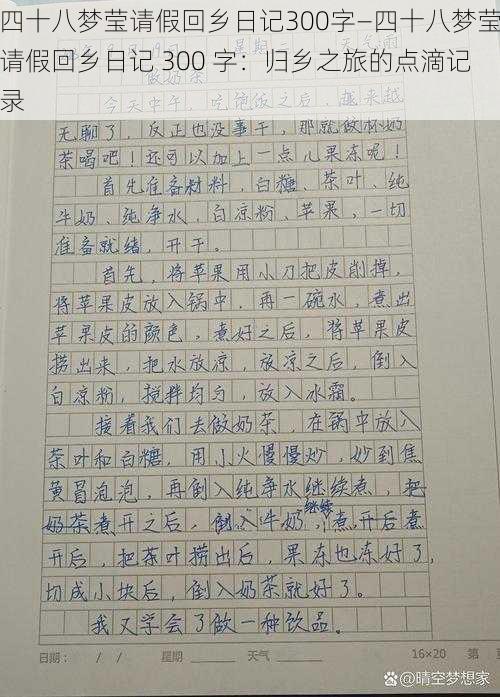 四十八梦莹请假回乡日记300字—四十八梦莹
请假回乡日记 300 字：归乡之旅的点滴记
录
做奶茶
今天中午，吃饱饭之后，越来越
无聊了，反正也没事干，那就做杯奶
茶喝吧！还可以加上一点儿果冻呢！
首先准备材料，白糖、茶叶、纯
牛奶、纯净水，白凉粉、苹果，一切
准备就绪，开干。
首先，将苹果用小刀把皮削掉，
将苹果皮放入锅中，再一碗水，煮出
苹果皮的颜色，煮好之后，将苹果皮
捞出来，把水放凉，放凉之后，倒入
白凉粉，搅拌均匀，放入水霜。
接着我们去做奶茶，在锅中放入
茶叶和白糖，用小火慢慢炒，炒到焦
黄冒泡泡，再倒入纯净水继续煮，把
奶茶煮开之后，倒入牛奶，继续煮开后煮
开后，把茶叶捞出后，果冻也冻好了，
切成小块后，倒入奶茶就好了。
我又学会了做一种饮品。
日期： / / 星期 天气 16×20 第
百家号/晴空梦想家